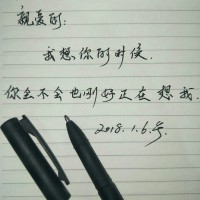 亲爱的:
我想你的时候.
你会不会也刚好正在想我.
2018.1.6.号.